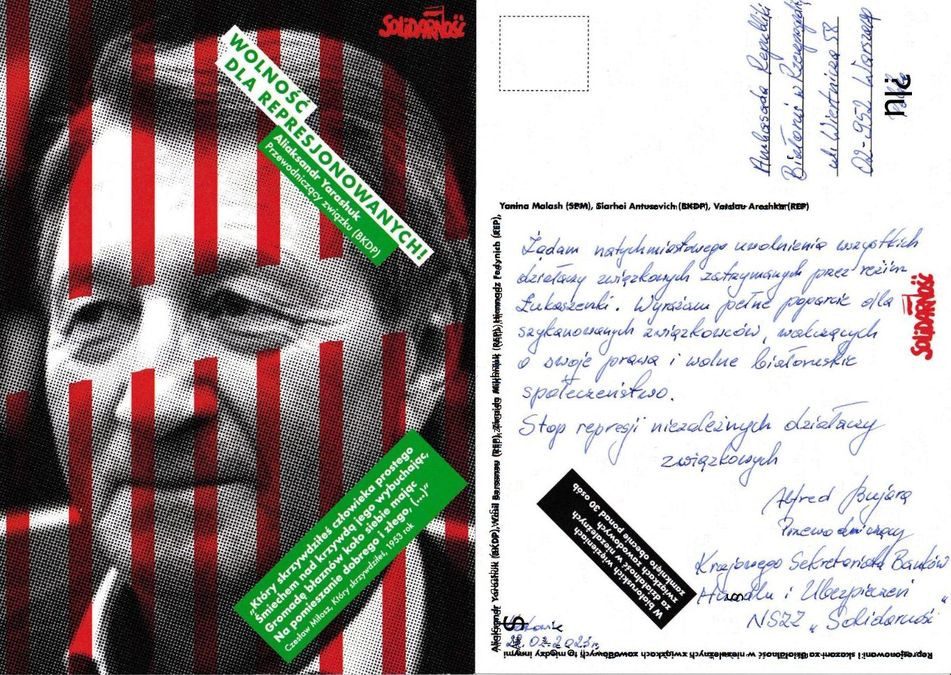 SOLIDARNOŚĆ
WOLNOŚĆ
DLA REPRESJONOWANYCH!
Aliaksandr Yarashuk
Przewodniczący związku (BKDP)
„Który skrzywdziłeś człowieka prostego
Śmiechem nad krzywdą jego wybuchając,
Gromadę błaznów koło siebie mając
Na pomieszanie dobrego i złego, (...)”
Czesław Miłosz, Który skrzywdziłeś, 1953 rok
Ambasada Republiki
Białoruś w Rzeczypospolitej
ul. Wiertnicza 58
02-952 Warszawa
Yanina Malash (SPM), Siarhei Antusevich (BKDP), Vatslau Areshka (REP)
Żądam natychmiastowego uwolnienia wszystkich
działaczy związkowych zatrzymanych przez reżim
Łukaszenki. Wyrażam pełne poparcie dla
szykanowanych związkowców, walczących
o swoje prawa i wolne białoruskie
społeczeństwo.
Stop represji niezależnych działaczy
związkowych
SOLIDARNOŚĆ
Alfred Bujara
Przewodniczący
Krajowego Sekretariatu Banków
Handlu i Ubezpieczeń
NSZZ „Solidarność
W białoruskich więzieniach
za działalność w niezależnych
związkach zawodowych
zamknięto obecnie ponad 30 osób
Aliaksandr Yarashuk (BKDP), Vasil Berasneu (REP),
Hennadz Fedynich (REP),
Represjonowani i skazani za działalność w niezależnych związkach zawodowych to między innymi